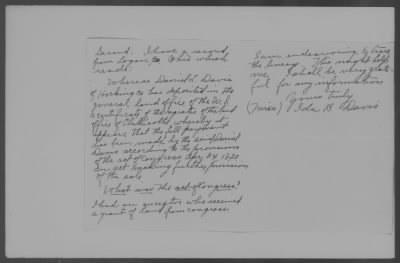 Second. I have a record
from Logan, O. Ohio which
reads.
Whereas David L. Davis
of Hocking Co has deposited in the
general land office of the U.S.
a certificate of the register of the land
office of Chillicothe whereby it
appears that the full payment
has been made by the said David
Davis according to the provisions
of the act of Congress Apr 24, 1820
An act making further provision
of the sale
What was the act of Congress?
I had an ancestor who received
a grant of land from congress
I am endeavoring to trace
the lineage. This might help
me. I shall be very grate-
ful for any information
Yours truly
(Miss) Ida B. Davis